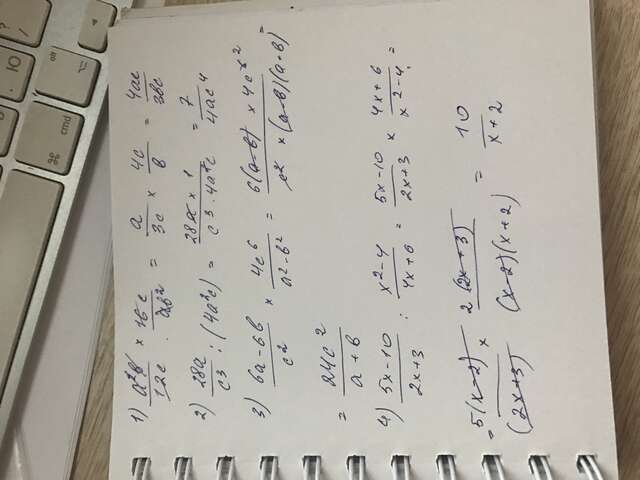 Ю
?
/
⌘
cmd
alt
⌥
1) a²b/12c × 16c/ab² = a/3c × 4c/b = 4ac/3bc
2) 28a/c³ : (4a²c) = 28a × 1/c³ · 4a²c = 7/4ac⁴
3) 6a-6b/c² × 4c⁶/a²-b² = 6(a-b) × 4c⁶ ²/c² × (a-b)(a+b) =
= 24c²/a+b
4) 5x-10/2x+3 : x²-4/4x+6 = 5x-10/2x+3 × 4x+6/x²-4 =
= 5(x-2)/(2x+3) × 2(2x+3)/(x-2)(x+2) = 10/x+2